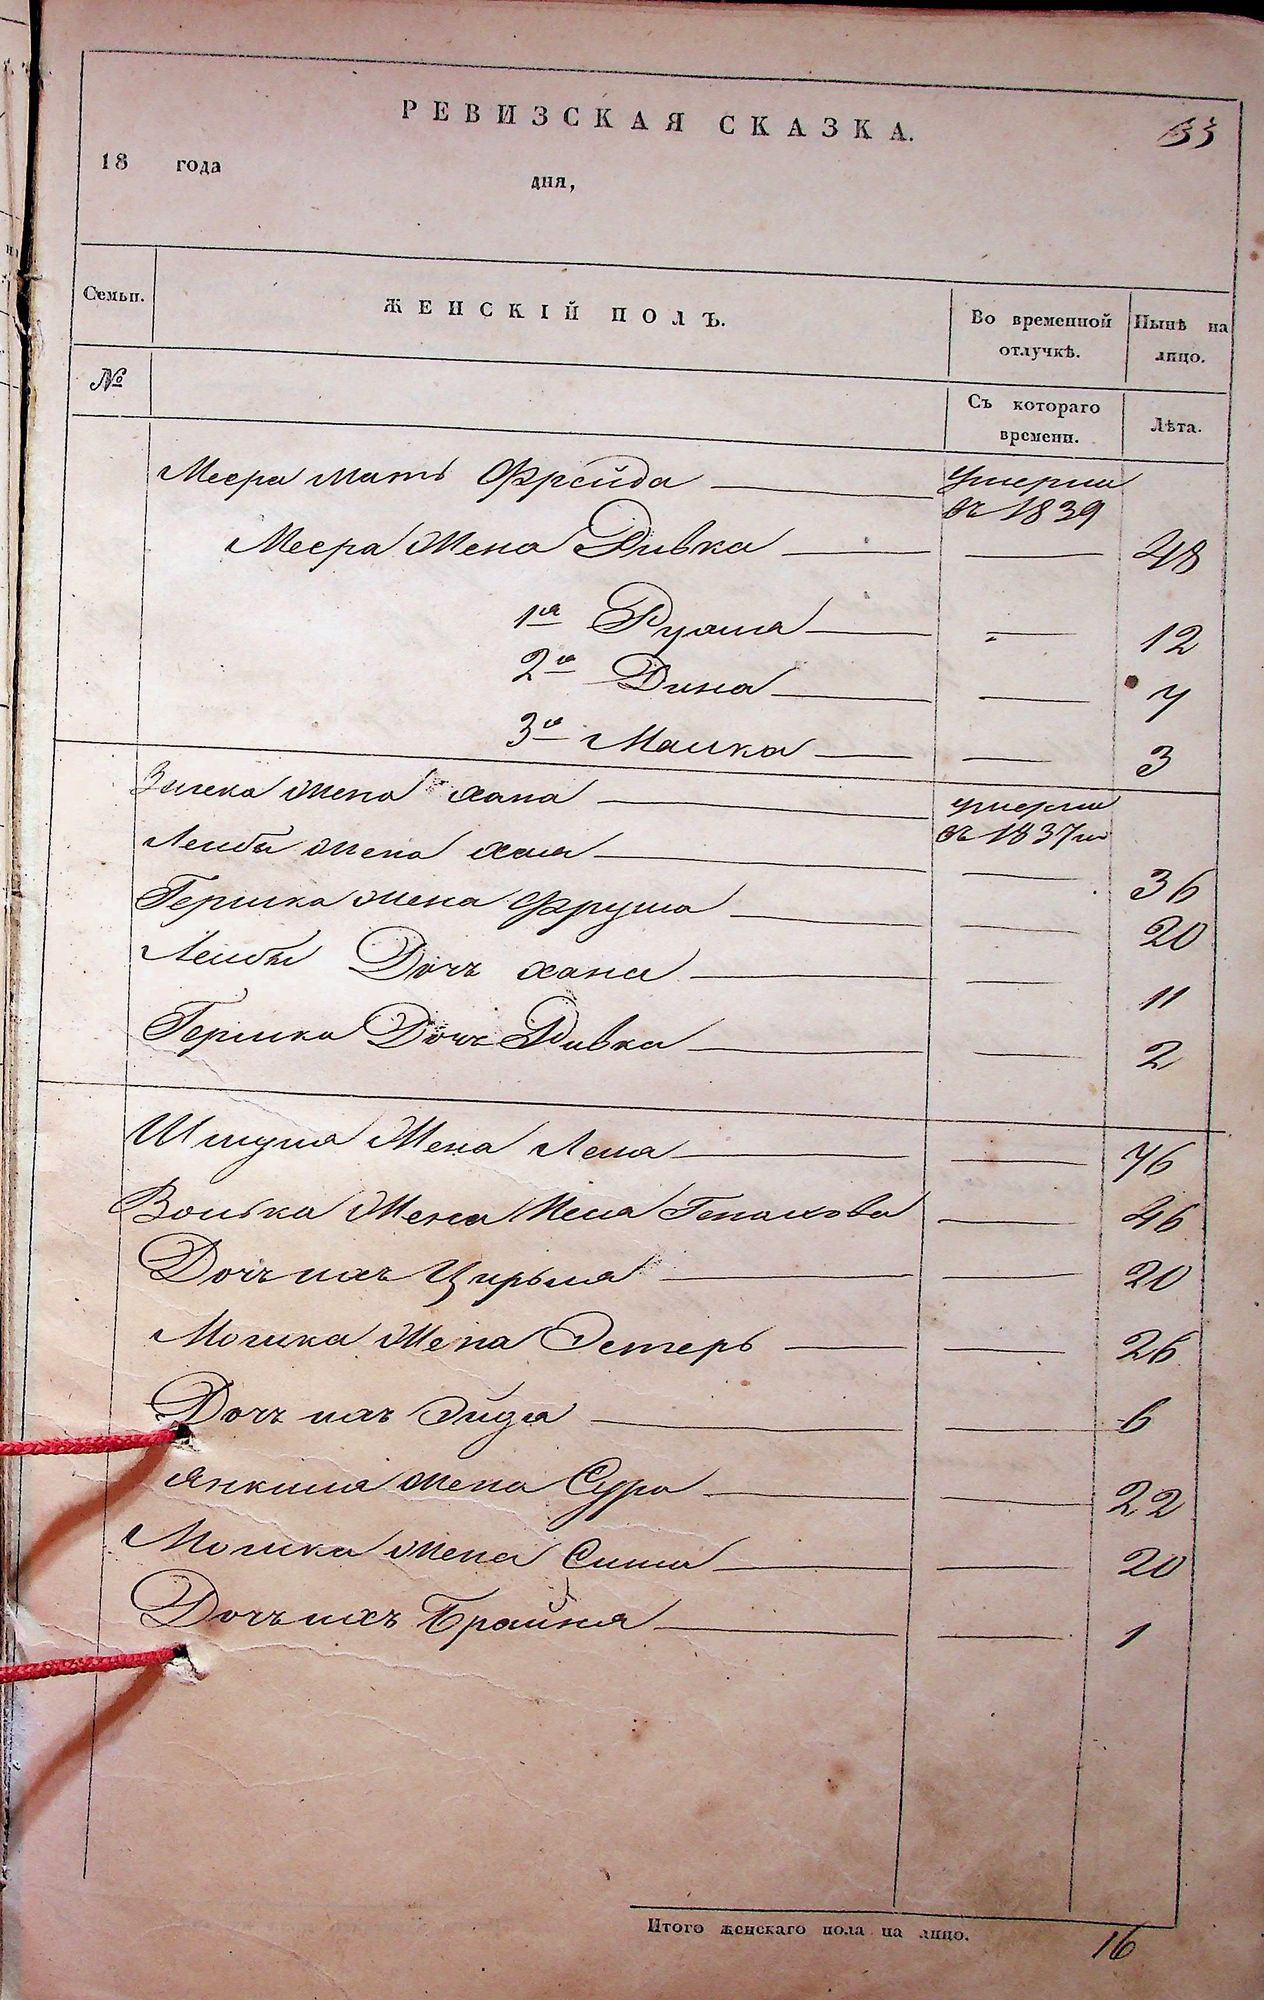 РЕВИЗСКАЯ СКАЗКА.
33
18 года
дня,
Семьи.
ЖЕНСКІЙ ПОЛЪ.
Во временной отлучкѣ.
Нынѣ на лицо.
№
Съ котораго времени.
Лѣта.
Меера мать Фрейда умерла въ 1839
Меера жена Ривка 48
1я 12
2я Дина 7
3я Машка 3
жена хана умерла въ 1837м
Лейбы жена хая 36
Гершка жена Фрума 20
Лейбы Дочь хана 11
Гершка Дочь Ривка 2
Шмуля Жена Лея 76
Волька Жена 46
Дочь ихъ Цирля 20
Мошка Жена Эстеръ 26
Дочь ихъ Эйдля 6
Янкиля жена Сура 22
Мошка жена 20
Дочь ихъ Брайна 1
Итого женскаго пола на лицо. 16